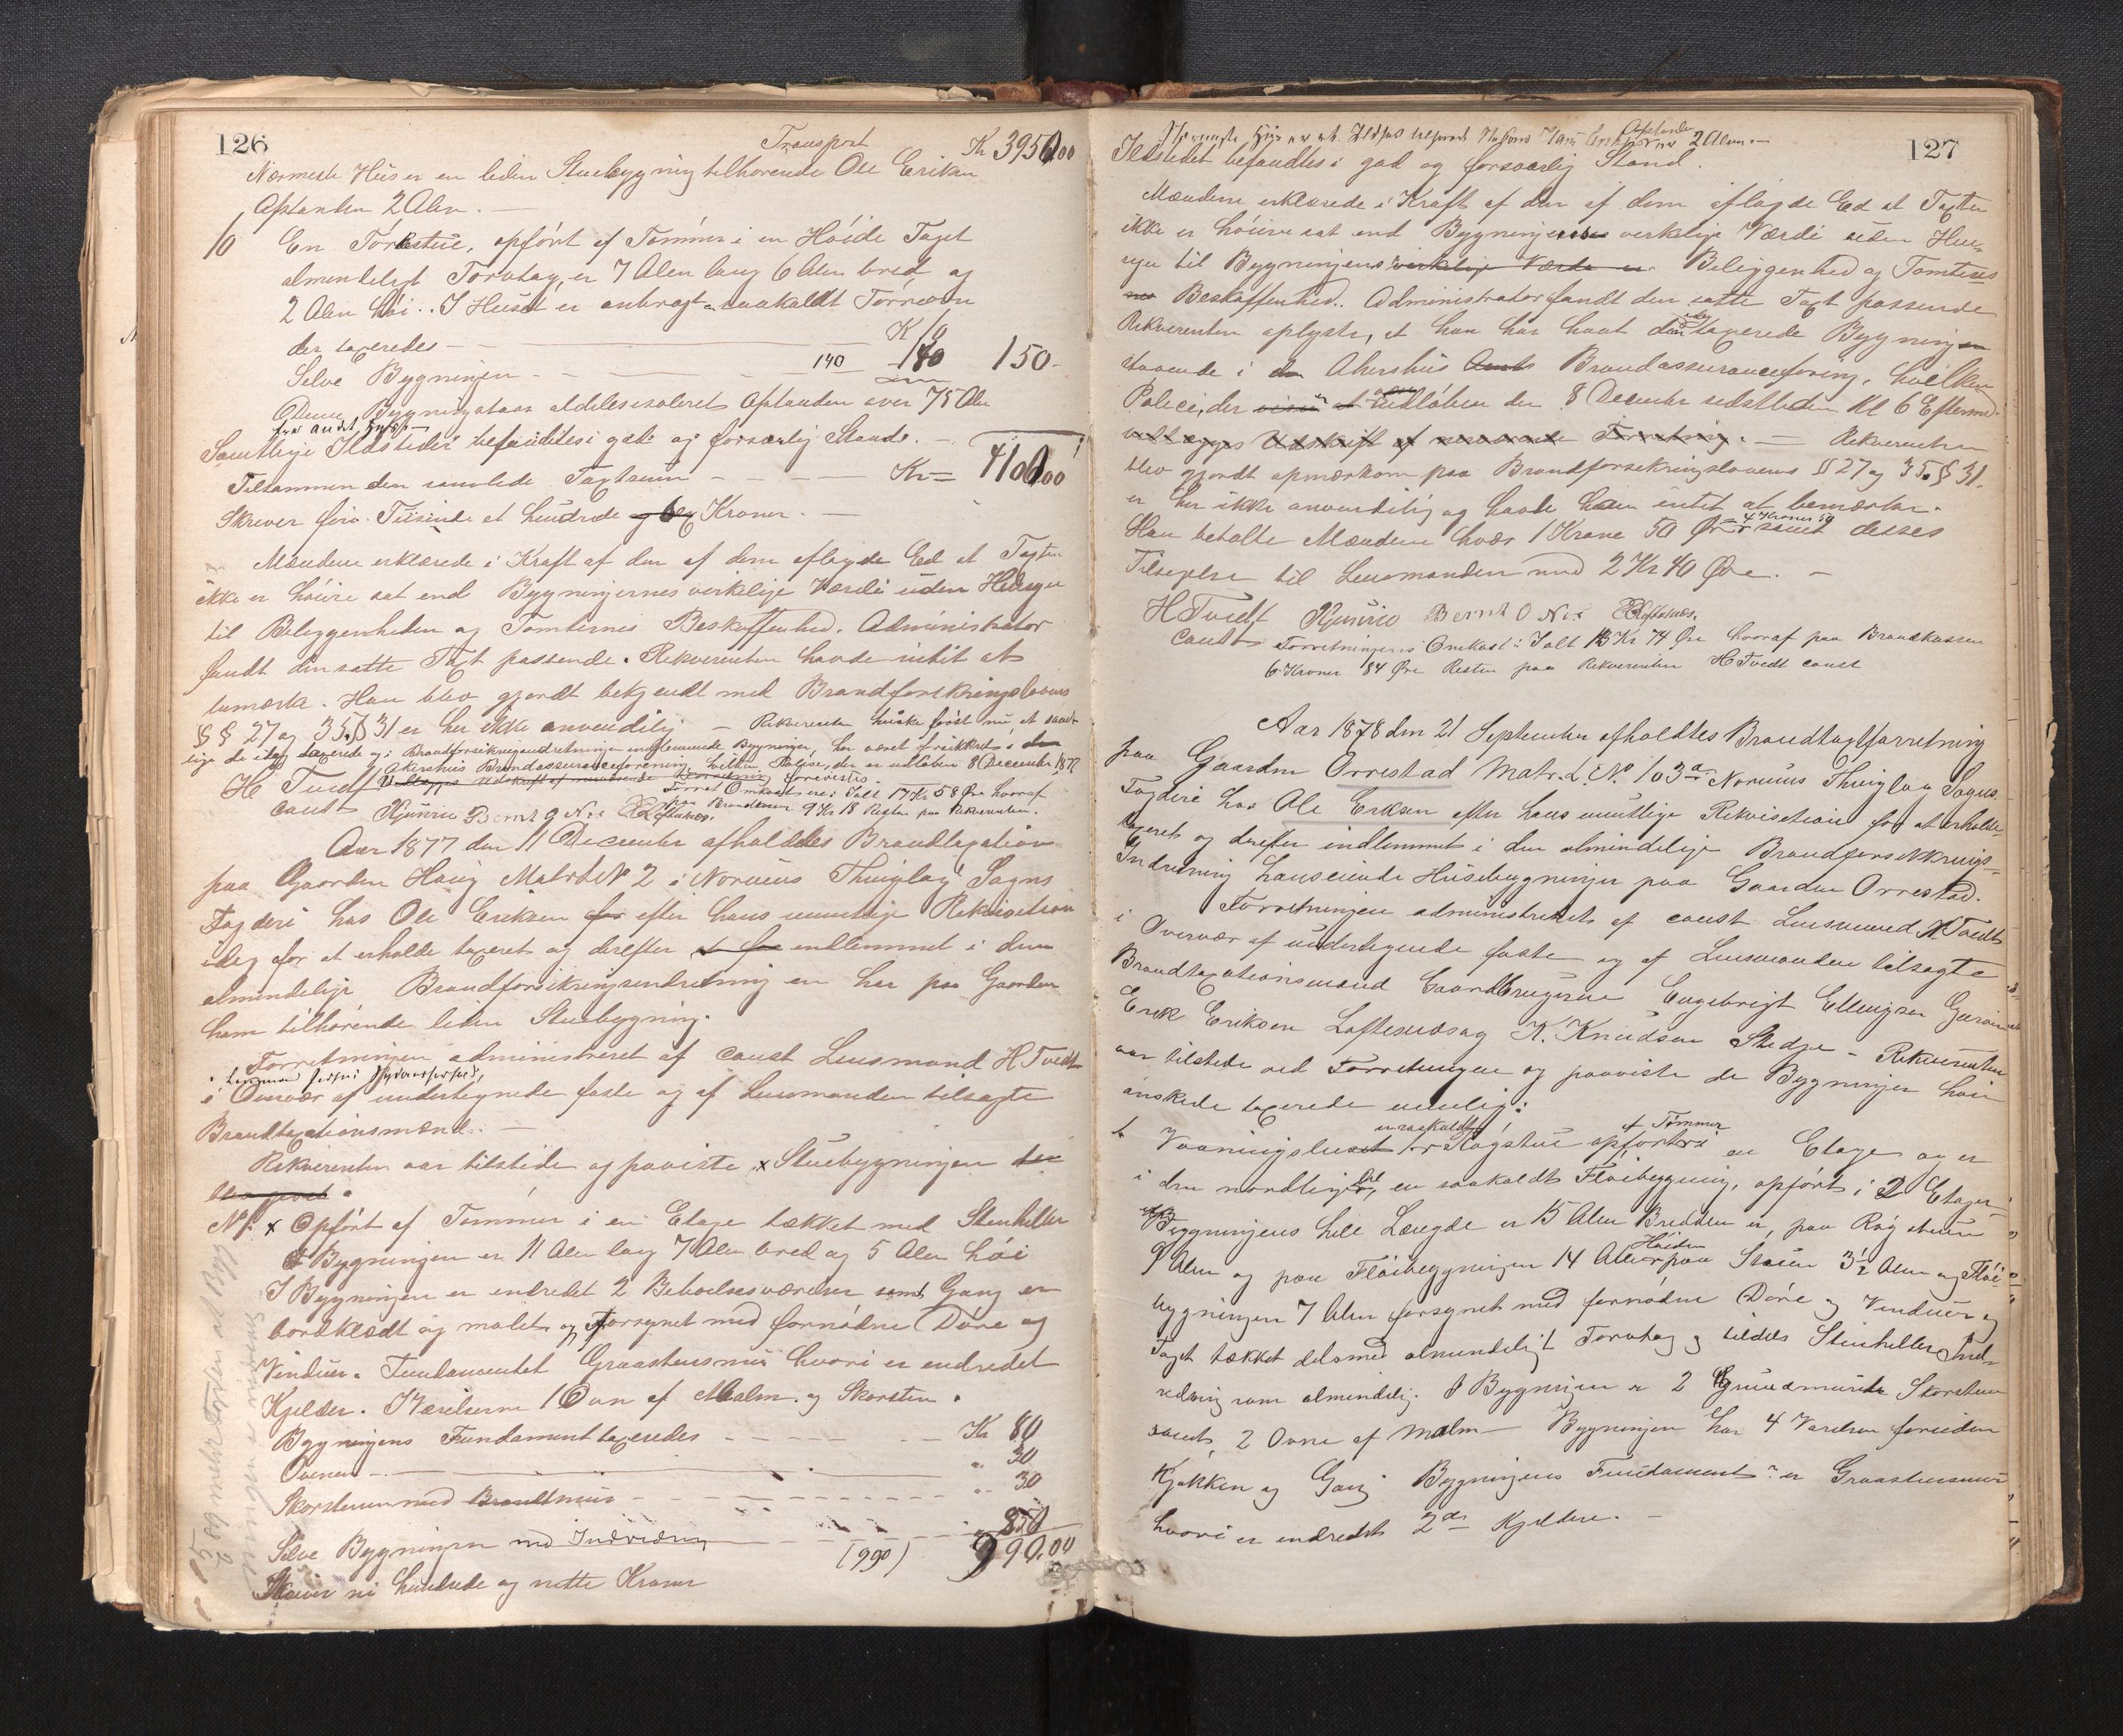 126
Transport Kr 3950,00
Nærmeste Hus er en liden Stuebygning tilhørende Ole Eriksen
Afstanden 2 Alen. —
10 En Törkestue, opfört af Tömmer i en Höide Taget
almindeligt Torvtag, er 7 Alen lang 6 Alen bred og
2 Alen höi. I Huset er anbragt saakaldt Törreovn
der taxeredes — K 10
Selve Bygningen — 140 140 150 -
Denne Bygning staar aldeles isoleret Afstanden over 75 Alen
fra andet Huus —
Samtlige Ildsteder befandtes i god og forsvarlig Stand. —
Tilsammen den samlede Taxtsum — Kr = 4100,00
Skriver fire Tusinde et hundrede og Kroner. —
Mændene erklærede i Kraft af den af dem aflagde Ed at Taxten
ikke er höiere sat end Bygningernes virkelige Værdi uden Hensyn
til Beliggenheden og Tomternes Beskaffenhed. Administrator
fandt den satte Taxt passende. Rekverenten havde intet at
bemærke. Han blev gjordt bekjendt med Brandforsikringslovens
§ § 27 og 35. § 31 er her ikke anvendelig — Rekverenten huske først nu, at samt-
lige de idag taxerede og i Brandforsikringsindretningen indlemmede Bygninger, har været forsikkret i den
Akershus Brandassuranceforening, hvilken Polise, der er udløben 8 December 1877
Vedlægges Udskrift af nærværende Forretning forevistes.
H Tvedt Forret. Omkostn. ere: Ialt 17 Kr 58 Øre hvoraf
const Bernt O Nes Loftesnæs. paa Brandkassen 9 Kr 18 Resten paa Rekverenten.
Aar 1877 den 11 December afholdtes Brandtaxation
paa Gaarden Haug Matr L No 2 i Norums Thinglag Sogns
Fogderi hos Ole Eriksen for efter hans mundtlige Rekvisition
idag for at erholde taxeret og derefter at faa indlemmet i den
almindelige Brandforsikringsindretning en her paa Gaarden
ham tilhørende liden Stuebygning.
Forretningen administreret af const Lensmand H Tvedt
i Overvær af undertegnede faste og af Lensmanden tilsagte
Brandtaxationsmænd. —
Rekverenten var tilstede og paaviste x Stuebygningen der
No 1. x Opfört af Tömmer i en Etage tækket med Stenheller
Bygningen er 11 Alen lang 7 Alen bred og 5 Alen höi
I Bygningen er indredet 2 Beboelsesværelser samt Gang er
bordklædt og malet og forsynet med fornödne Döre og
Vinduer. Fundamentet Graastensmur hvori er indredet
Kjelder. I Værelserne 1 Ovn af Malm og Skorsten.
Bygningens Fundament taxeredes — Kr 80
Ovnen — " 30
Skorstenen med Brandmur — " 30
Selve Bygningen med Indredning — " 850
(990) 990,00
Skriver ni hundrede og nitte Kroner
127
Afstanden 2 Alen —
Ildstedet befandtes i god og forsvarlig Stand.
Mændene erklærede i Kraft af den af dem aflagde Ed at Taxten
ikke er höiere sat end Bygningens virkelige Værdi uden Hen-
syn til Bygningens virkelige Værdi er Beliggenhed og Tomtens
Beskaffenhed. Administrator fandt den satte Taxt passende
Rekverenten oplyste, at han har havt den idag taxerede Bygning
staaende i den Akershus Amts Brandassuranceforening, hvilken
Polise, der udløben den 8 December sidstleden Kl 6 Efterm.
vedlægges Udskrift af nærværende Forretning. — Rekverenten
blev gjordt opmærksom paa Brandforsikringslovens §§ 27 og 35. § 31.
er her ikke anvendelig og havde han intet at bemærke.
Han betalte Mændene hver 1 Krone 50 Øre = 4 Kroner 50 samt desses
Tilsigelse til Lensmanden med 2 Kr 40 Øre. —
H Tvedt Bernt O Nes Loftesnæs.
const Forretningens Omkost: Ialt 13 Kr 74 Øre hvoraf paa Brandkassen
6 Kroner 84 Øre Resten paa Rekverenten H Tvedt const
Aar 1878 den 21 September afholdtes Brandtaxtforretning
paa Gaarden Orrestad Matr. L. No 103 a Norums Thinglag Sogns
Fogderi hos Ole Eriksen efter hans mundtlige Rekvisition for at erholde
taxeret og derefter indlemmet i den almindelige Brandforsikrings-
Indretning hans eiende Husebygninger paa Gaarden Orrestad.
Forretningen administreret af const Lensmand H. Tvedt
i Overvær af undertegnede faste og af Lensmanden tilsagte
Brandtaxationsmænd Gaardbrugerne Engebrigt Ellingsen
Erik Eriksen Loftesnæs og K. Knudsen Stedje — Rekverenten
var tilstede ved Forretningen og paaviste de Bygninger han
önskede taxerede nemlig:
1. Vaaningshuset er en saakaldt Rögstue opfört af Tömmer i en Etage og er
i den nordlige Del, en saakaldt Flöibygning, opfört i 2 Etager
Bygningens hele Længde er 15 Alen Bredden er, paa Rög stuen
9 Alen og paa Flöibygningen 14 Alen Höiden paa Stuen 3½ Alen og Flöi-
bygningen 7 Alen forsynet med fornödne Döre og Vinduer og
Taget tækket dels med almindeligt Torvtag og tildels Stenheller. Ind-
redning som almindelig. I Bygningen er 2 Grundmurede Skorstene
samt 2 Ovne af Malm — Bygningen har 4 Værelser foruden
Kjøkken og Gang Bygningens Fundament er Graastensmur
hvori er indredet 2de Kjeldere. —